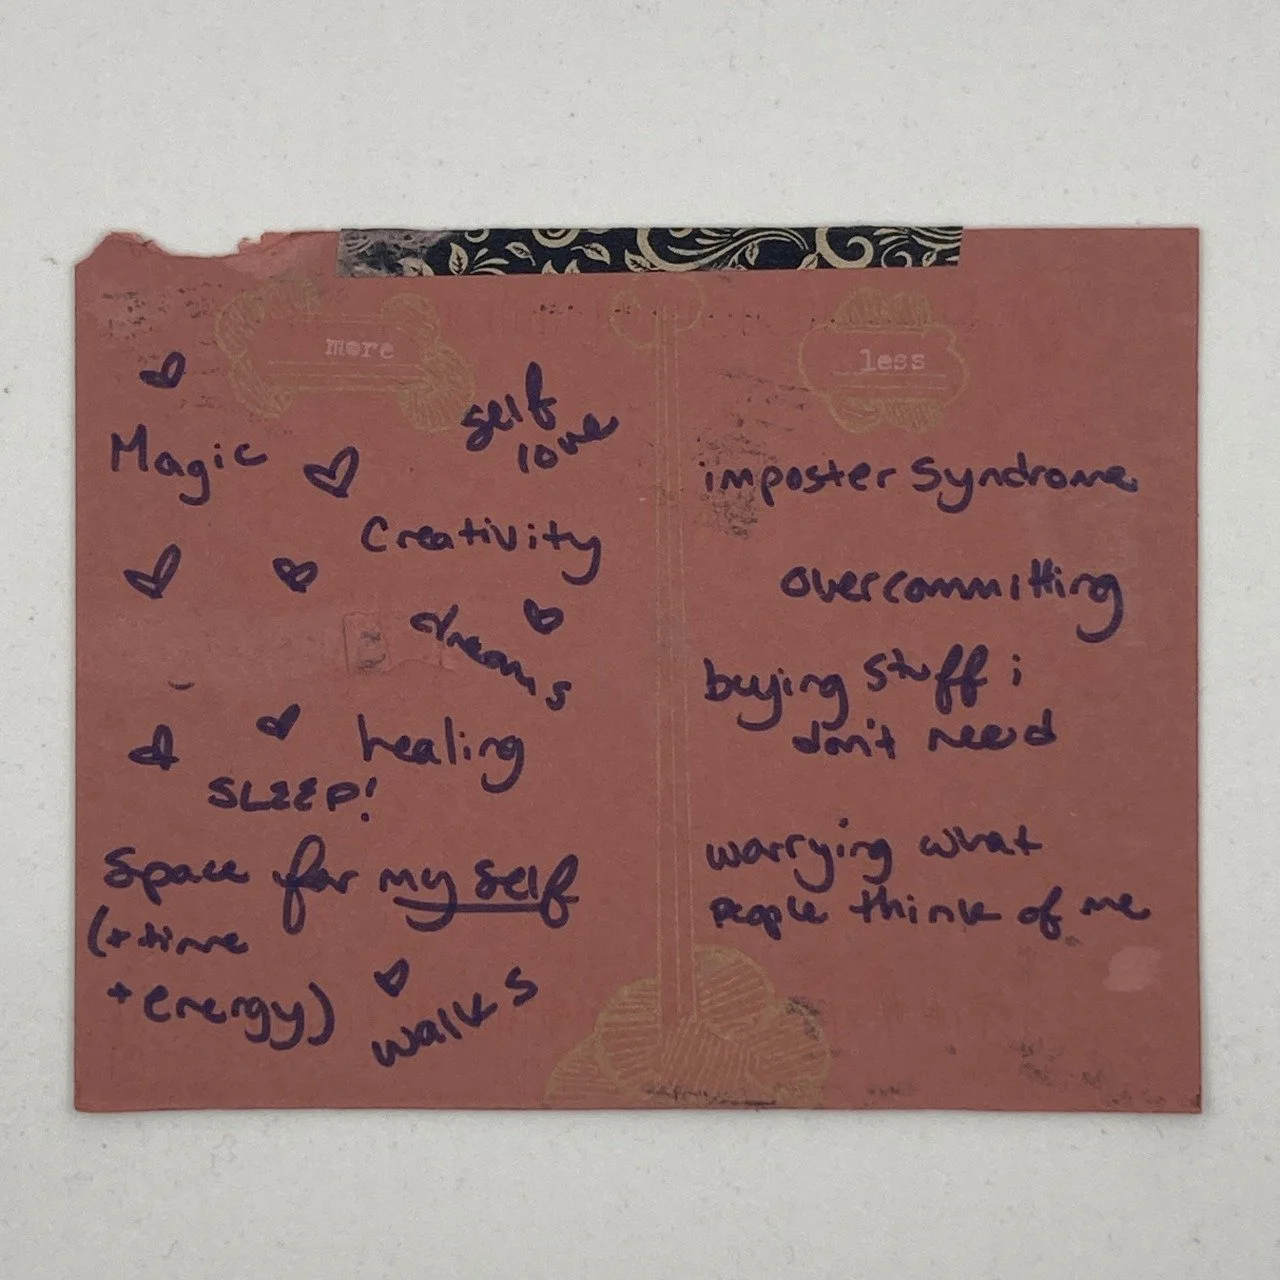 more
self
love
Magic
Creativity
dreams
healing
SLEEP!
Space for my self
(+ time
+ energy)
walks
less
imposter Syndrome
overcommitting
buying stuff i
don't need
worrying what
people think of me